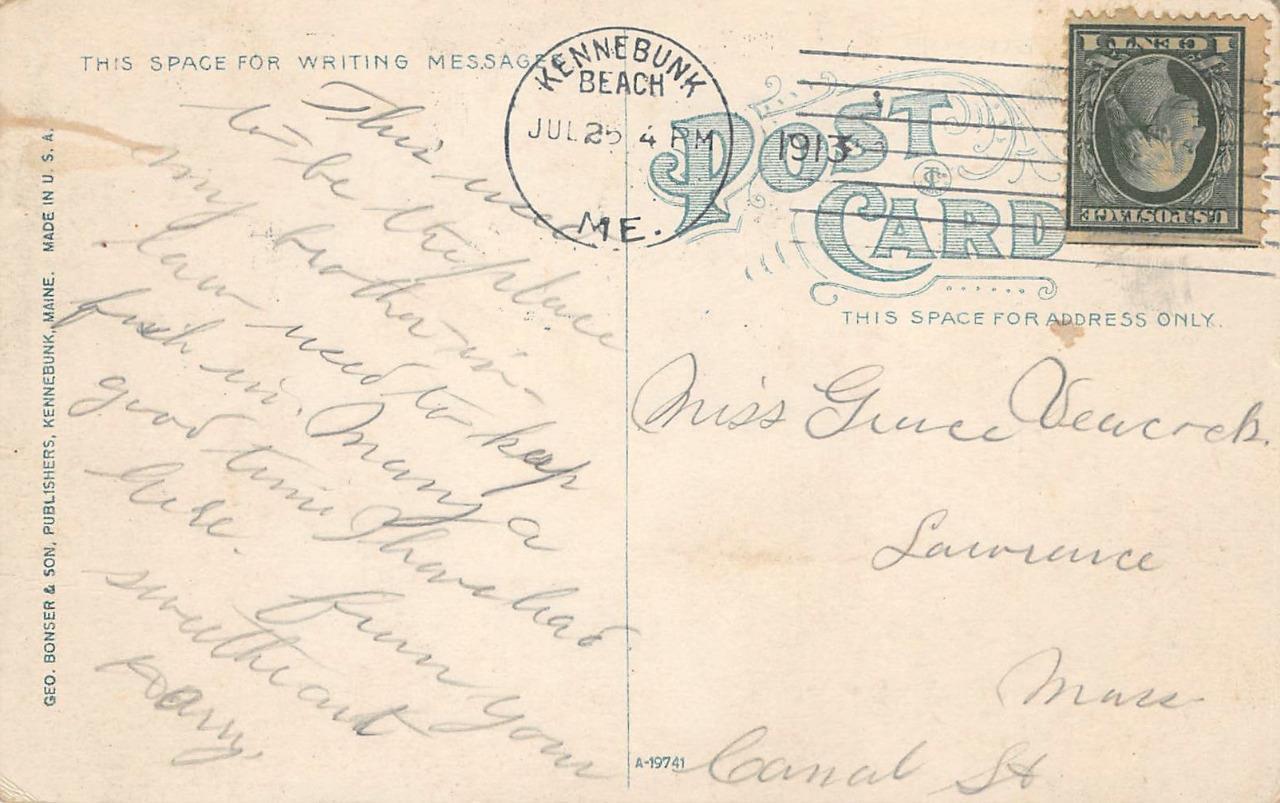 THIS SPACE FOR WRITING MESSAGES
KENNEBUNK
BEACH
JUL 25 4 PM
1913
ME.
POST
CARD
ONE CENT 1
U.S. POSTAGE
THIS SPACE FOR ADDRESS ONLY.
This used
to be the place
my brother-in-
law used to keep
fish in. Many a
good time I have had
here.
from your
sweetheart
Harry.
Miss Grace Veacock.
Lawrence
Mass
Canal St
GEO. BONSER & SON, PUBLISHERS, KENNEBUNK, MAINE. MADE IN U. S. A.
A-19741